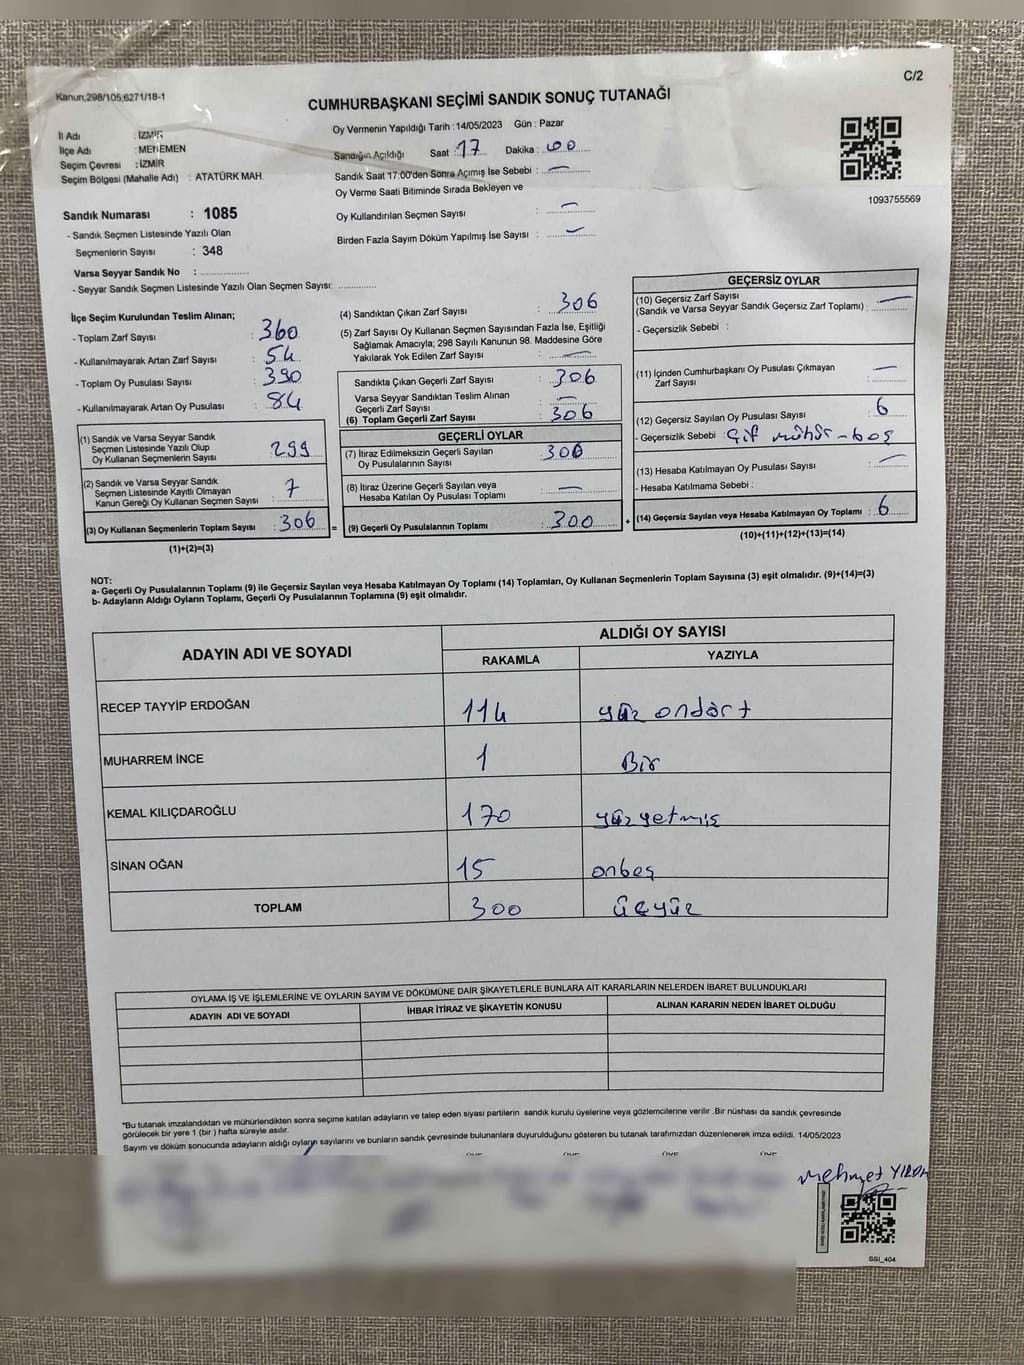 C/2
Kanun;298/105;6271/18-1
CUMHURBAŞKANI SEÇİMİ SANDIK SONUÇ TUTANAĞI
İl Adı : İZMİR
İlçe Adı : MENEMEN
Seçim Çevresi : İZMİR
Seçim Bölgesi (Mahalle Adı) : ATATÜRK MAH.
Oy Vermenin Yapıldığı Tarih :14/05/2023 Gün : Pazar
Sandığın Açıldığı Saat : 17 Dakika : 00
Sandık Saat 17:00'den Sonra Açımış İse Sebebi : —
Oy Verme Saati Bitiminde Sırada Bekleyen ve
Oy Kullandırılan Seçmen Sayısı : —
Birden Fazla Sayım Döküm Yapılmış İse Sayısı : —
1093755569
Sandık Numarası : 1085
- Sandık Seçmen Listesinde Yazılı Olan
Seçmenlerin Sayısı : 348
Varsa Seyyar Sandık No : ................
- Seyyar Sandık Seçmen Listesinde Yazılı Olan Seçmen Sayısı: ............
İlçe Seçim Kurulundan Teslim Alınan;
- Toplam Zarf Sayısı : 360
- Kullanılmayarak Artan Zarf Sayısı : 54
- Toplam Oy Pusulası Sayısı : 390
- Kullanılmayarak Artan Oy Pusulası : 84
(1) Sandık ve Varsa Seyyar Sandık
Seçmen Listesinde Yazılı Olup
Oy Kullanan Seçmenlerin Sayısı : 299
(2) Sandık ve Varsa Seyyar Sandık
Seçmen Listesinde Kayıtlı Olmayan
Kanun Gereği Oy Kullanan Seçmen Sayısı : 7
(3) Oy Kullanan Seçmenlerin Toplam Sayısı : 306 =
(1)+(2)=(3)
(4) Sandıktan Çıkan Zarf Sayısı : 306
(5) Zarf Sayısı Oy Kullanan Seçmen Sayısından Fazla İse, Eşitliği
Sağlamak Amacıyla; 298 Sayılı Kanunun 98. Maddesine Göre
Yakılarak Yok Edilen Zarf Sayısı : —
Sandıkta Çıkan Geçerli Zarf Sayısı : 306
Varsa Seyyar Sandıktan Teslim Alınan
Geçerli Zarf Sayısı : —
(6) Toplam Geçerli Zarf Sayısı : 306
GEÇERLİ OYLAR
(7) İtiraz Edilmeksizin Geçerli Sayılan
Oy Pusulalarının Sayısı : 300
(8) İtiraz Üzerine Geçerli Sayılan veya
Hesaba Katılan Oy Pusulası Toplamı : —
(9) Geçerli Oy Pusulalarının Toplamı : 300 +
GEÇERSİZ OYLAR
(10) Geçersiz Zarf Sayısı
(Sandık ve Varsa Seyyar Sandık Geçersiz Zarf Toplamı) : —
- Geçersizlik Sebebi :
(11) İçinden Cumhurbaşkanı Oy Pusulası Çıkmayan
Zarf Sayısı : —
(12) Geçersiz Sayılan Oy Pusulası Sayısı : 6
- Geçersizlik Sebebi : Çif mühür - boş
(13) Hesaba Katılmayan Oy Pusulası Sayısı : —
- Hesaba Katılmama Sebebi :
(14) Geçersiz Sayılan veya Hesaba Katılmayan Oy Toplamı : 6
(10)+(11)+(12)+(13)=(14)
NOT:
a- Geçerli Oy Pusulalarının Toplamı (9) ile Geçersiz Sayılan veya Hesaba Katılmayan Oy Toplamı (14) Toplamları, Oy Kullanan Seçmenlerin Toplam Sayısına (3) eşit olmalıdır. (9)+(14)=(3)
b- Adayların Aldığı Oyların Toplamı, Geçerli Oy Pusulalarının Toplamına (9) eşit olmalıdır.
ADAYIN ADI VE SOYADI ALDIĞI OY SAYISI
RAKAMLA YAZIYLA
RECEP TAYYİP ERDOĞAN 114 yüz ondört
MUHARREM İNCE 1 Bir
KEMAL KILIÇDAROĞLU 170 yüzyetmiş
SİNAN OĞAN 15 onbeş
TOPLAM 300 üçyüz
OYLAMA İŞ VE İŞLEMLERİNE VE OYLARIN SAYIM VE DÖKÜMÜNE DAİR ŞİKAYETLERLE BUNLARA AİT KARARLARIN NELERDEN İBARET BULUNDUKLARI
ADAYIN ADI VE SOYADI İHBAR İTİRAZ VE ŞİKAYETİN KONUSU ALINAN KARARIN NEDEN İBARET OLDUĞU
*Bu tutanak imzalandıktan ve mühürlendikten sonra seçime katılan adayların ve talep eden siyasi partilerin sandık kurulu üyelerine veya gözlemcilerine verilir .Bir nüshası da sandık çevresinde
görülecek bir yere 1 (bir ) hafta süreyle asılır.
Sayım ve döküm sonucunda adayların aldığı oyların sayılarını ve bunların sandık çevresinde bulunanlara duyurulduğunu gösteren bu tutanak tarafımızdan düzenlenerek imza edildi. 14/05/2023
Mehmet
SSI_404